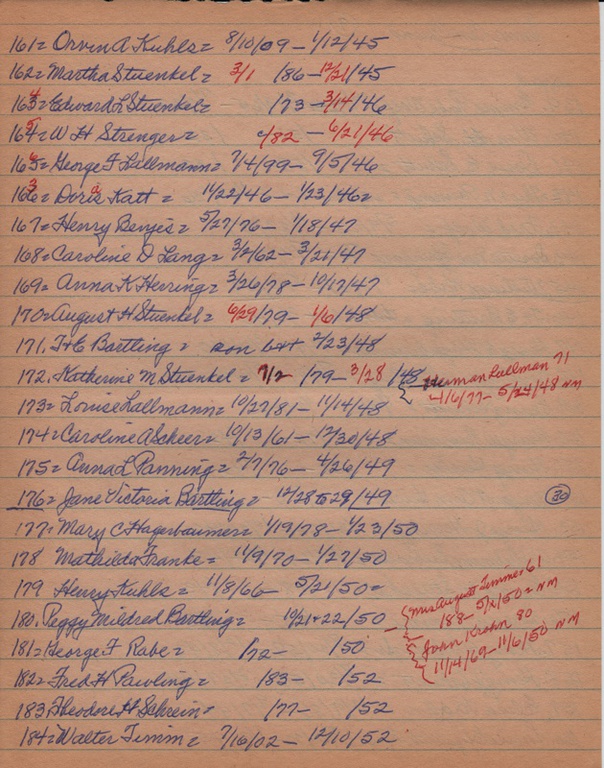 161 = Orvin A Kuhls = 8/10/09 - 1/12/45
162 = Martha Stuenkel = 3/1 /86 - 12/21/45
164 = Edward L Stuenkel = /73 - 3/14/46
165 = W H Strenger = /82 - 6/21/46
166 = George F Lallmann = 7/4/99 - 9/5/46
163 = Doris Katt = 11/22/46 - 1/23/46 =
167 = Henry Benjes = 5/27/76 - 1/18/47
168 = Caroline D Lang = 3/2/62 - 3/21/47
169 = Anna K Herring = 3/26/78 - 10/17/47
170 = August H Stuenkel = 6/29/79 - 1/6/48
171. F+E Bartling = son b++ 2/23/48
172. Katherine M Stuenkel = 7/2 /79 - 3/28 /48 { Herman Lallman 71
4/6/77 - 5/24/48 NM
173 = Louise Lallmann = 10/27/81 - 11/14/48
174 = Caroline A Scheer = 10/13/61 - 12/30/48
175 = Anna L Panning = 2/7/76 - 4/26/49
176 = Jane Victoria Bartling = 12/28 to 29/49 (30)
177 = Mary C Hagerbaumer = 1/19/78 - 1/23/50
178 Mathilda Franke = 11/9/70 - 1/27/50
179 Henry Kuhls = 11/8/66 - 5/21/50 =
180. Peggy Mildred Bartling = 10/21+22/50 - { Mrs August Timmer 61
188 - 5/2/50 = NM
181 = George F Rabe = /72 - /50 { John Krohn 80
11/14/69 - 11/6/50 NM
182 = Fred H Pawling = /83 - /52
183 Theodore H Schrein = /77 - /52
184 = Walter Timm = 7/16/02 - 12/10/52